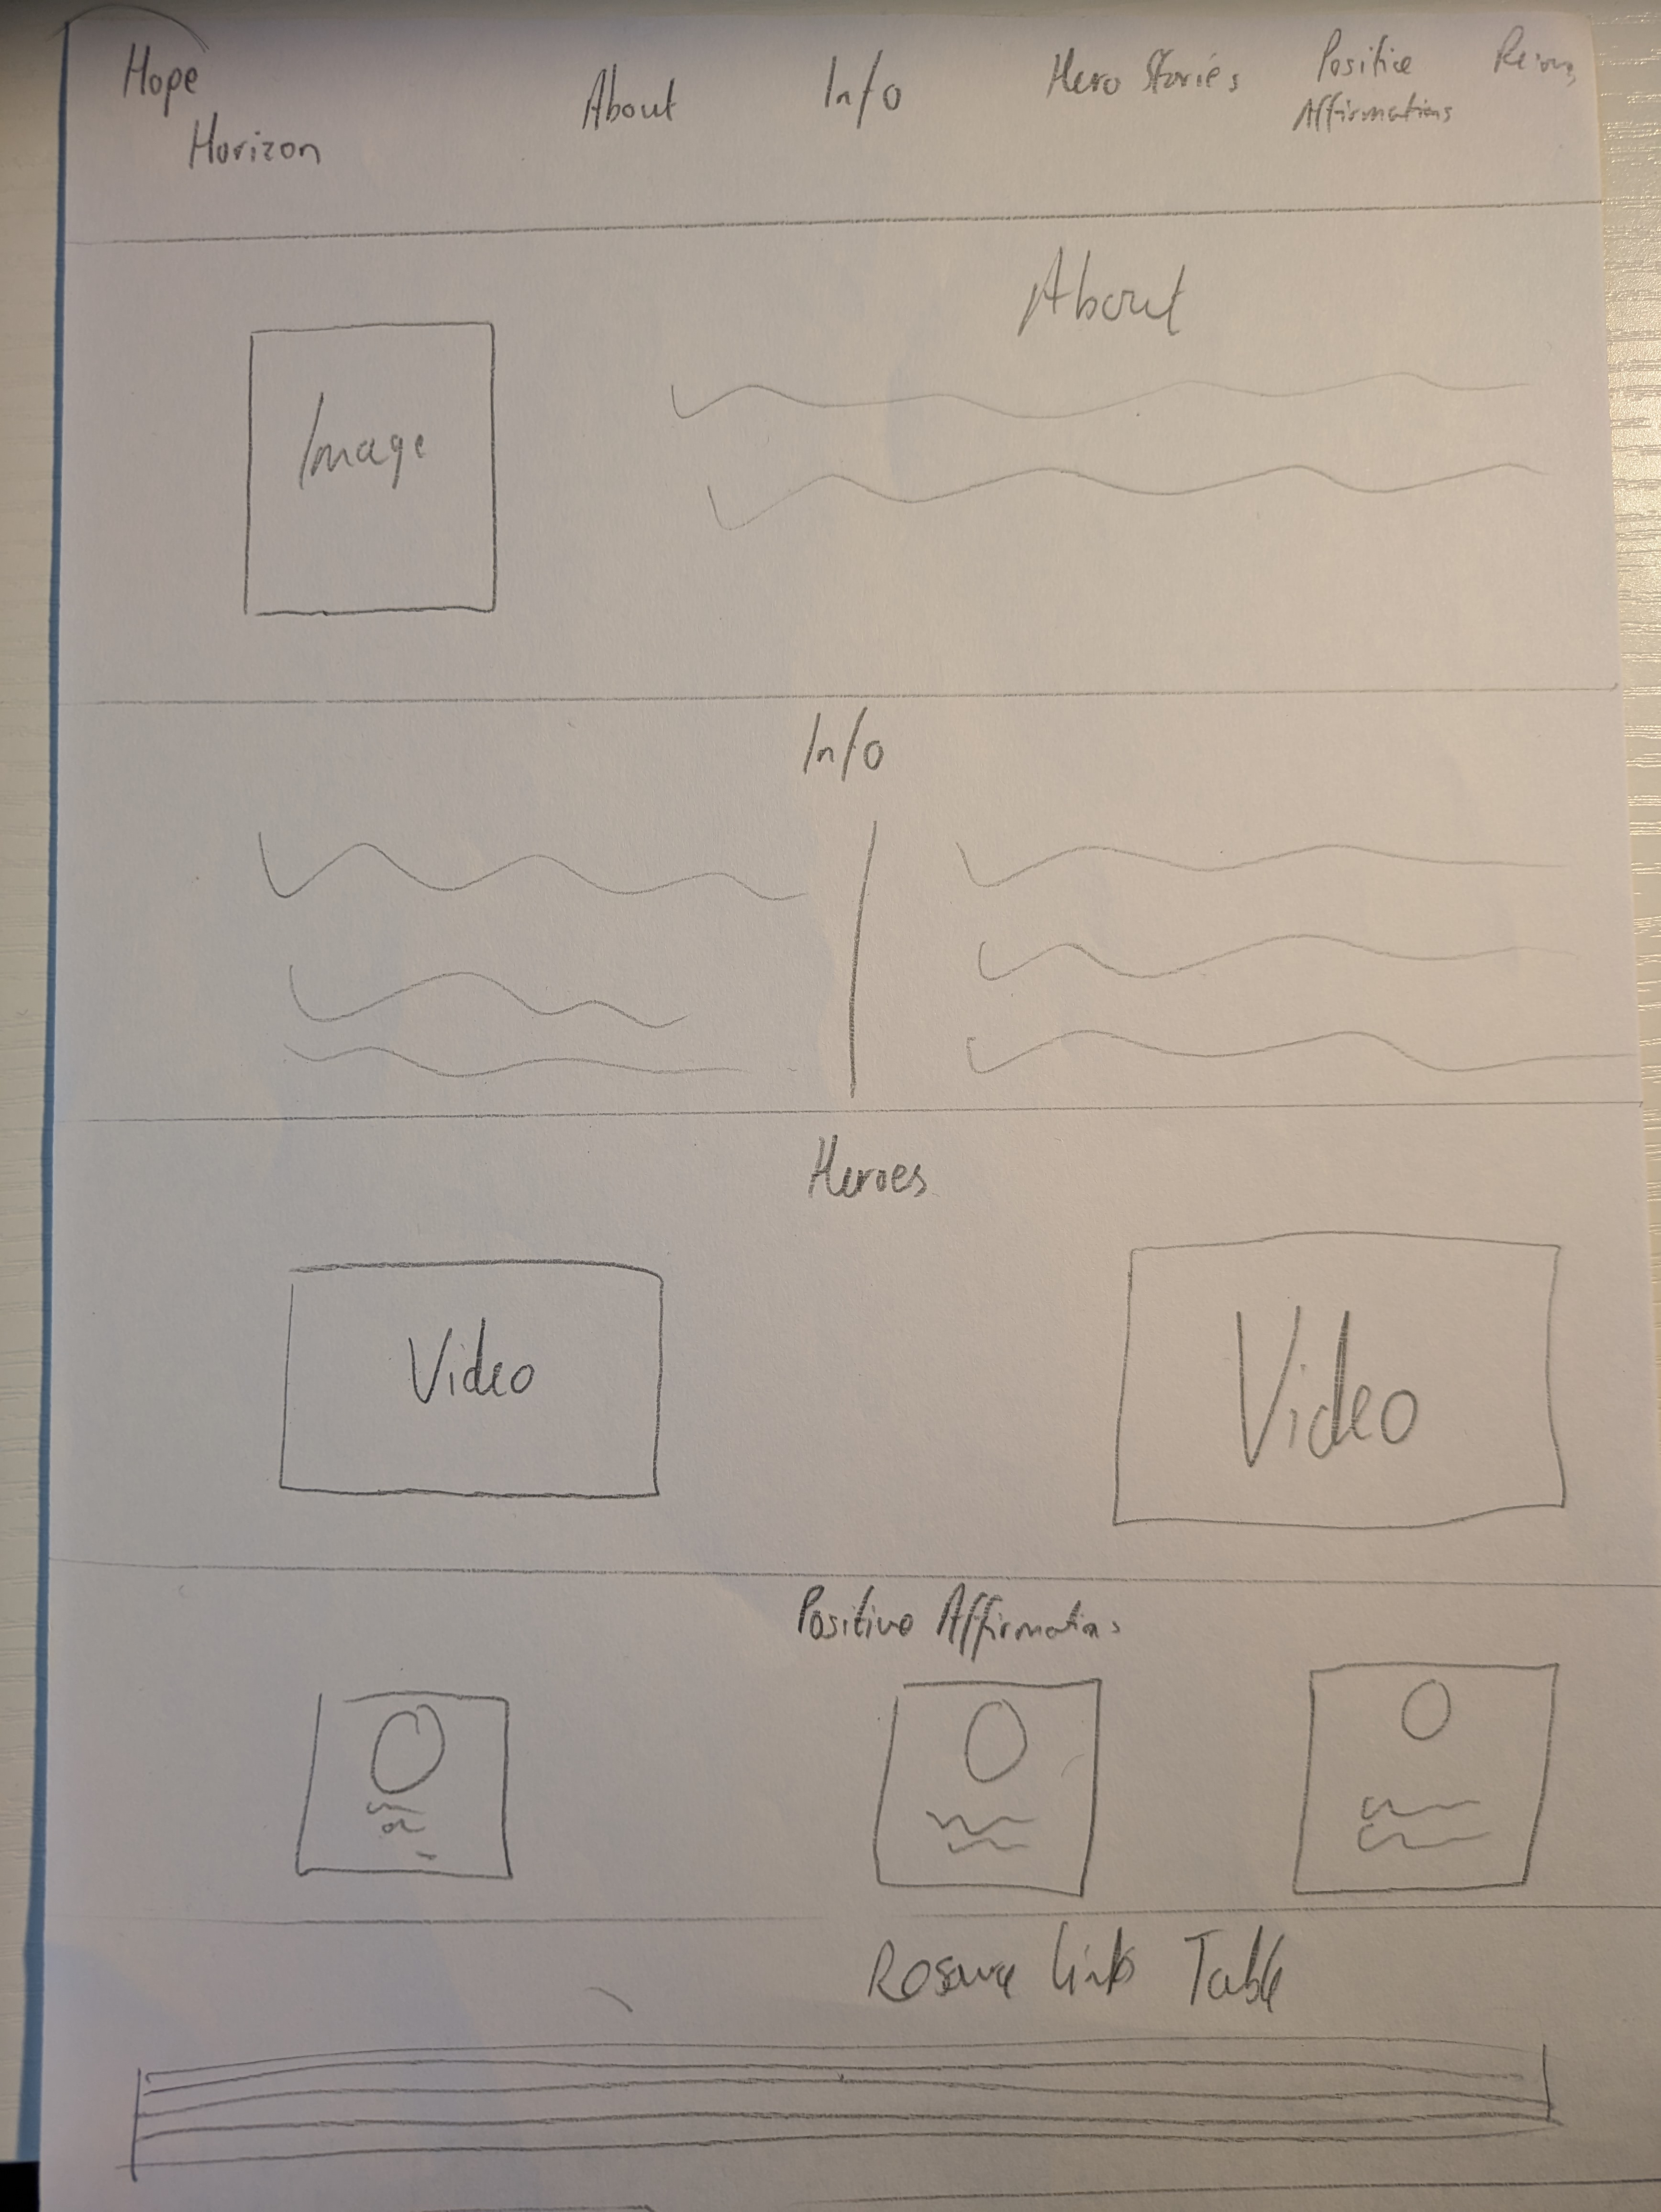 Hope
Horizon
About
Info
Hero Stories
Positive
Affirmations
About
Image
Info
Heroes
Video
Video
Positive Affirmations
Links Table